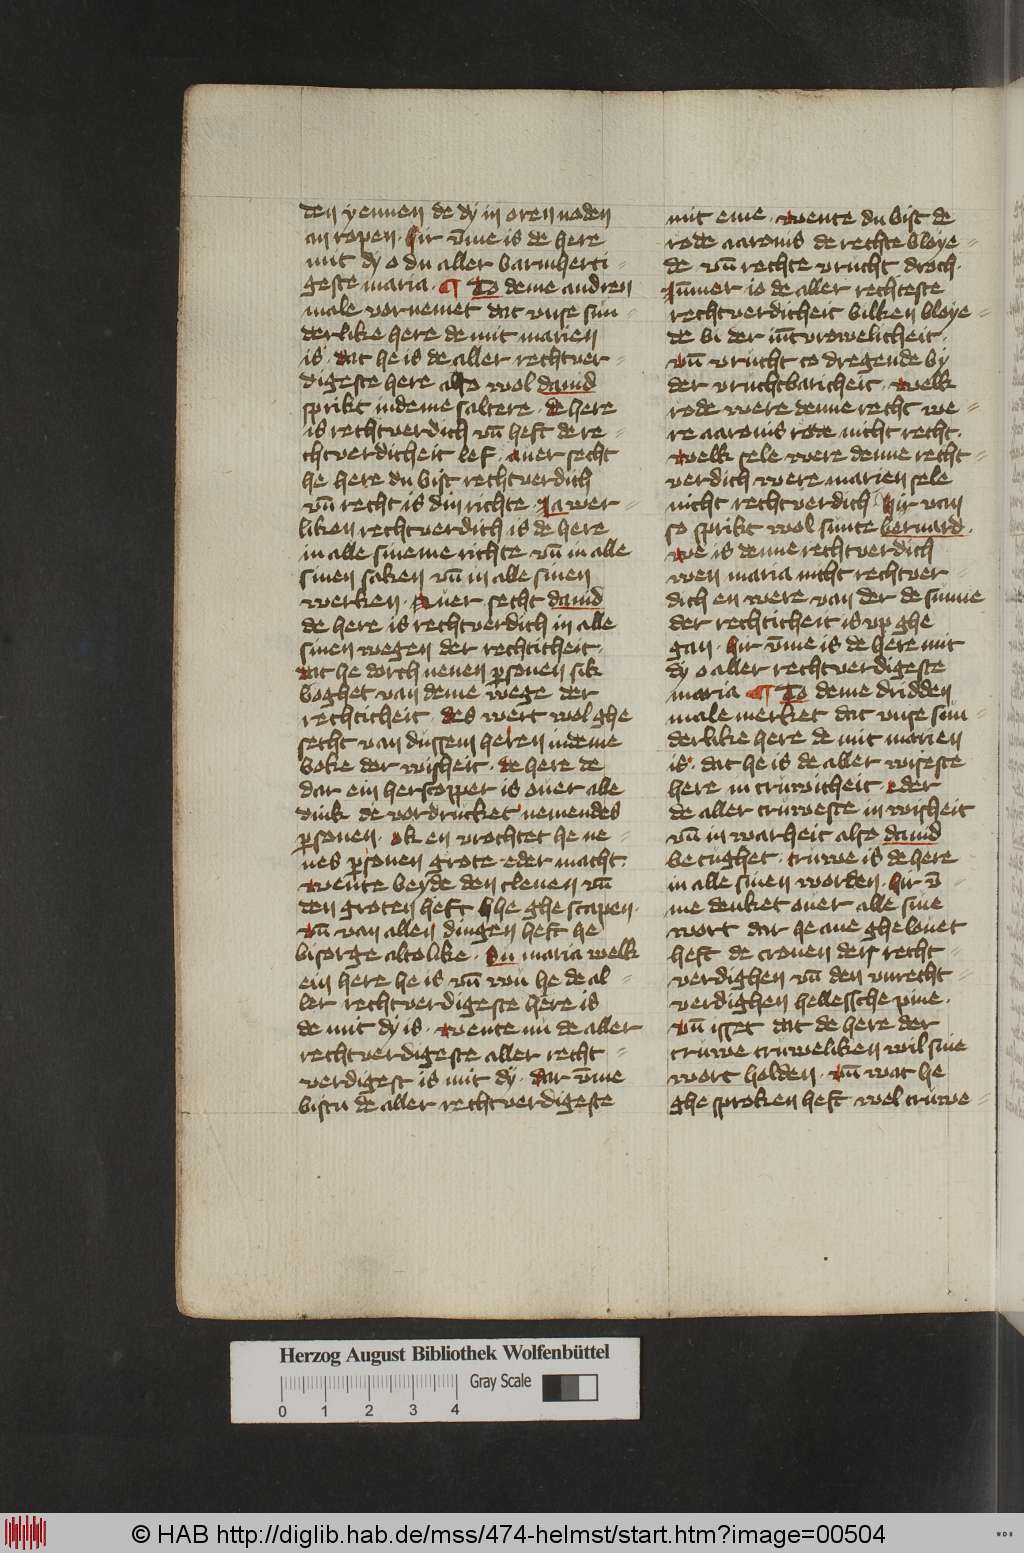 den yennen de dy in oren noden
an ropen · hir vm̄e is de here
mit dy o du aller barmherti-
geste maria · ¶ To deme andren
male vornemet dat vnse sun-
derlike here de mit marien
is · dat he is de aller rechtver-
digeste here also wol dauid
sprikt indeme saltere · de here
is rechtverdich vn̄ heft de re-
chtverdicheit lef · auer secht
he here du bist rechtverdich
vn̄ recht is din richte · Ja wer-
liken rechtverdich is de here
in alle sineme richte vn̄ in alle
sinen saken vn̄ in alle sinen
werken · Auer secht dauid
de here is rechtverdich in alle
sinen wegen der rechticheit ·
dat he dorch nenen ꝑsonen sik
boghet van deme wege der
rechticheit · des wert wol ghe
secht van dussem heren indeme
boke der wisheit · de here de
dar ein herscopper is ouer alle
dink de vordrucket nemendes
ꝑsonen · ok en vrochtet he ne-
nes ꝑsonen grote eder macht ·
wente beyde den clenen vn̄
den groten heft he ghe scapen ·
vn̄ van allen dingen heft he
bisorge altolike · Su maria welk
ein here he is vn̄ wu he de al-
ler rechtverdigeste here is
de mit dy is · wente nu de aller
rechtverdigeste aller recht-
verdigest is mit dy · dar vm̄e
bistu de aller rechtverdigeste
mit eme · wente du bist de
rode aarons de rechte bloye-
de vn̄ rechte vrucht droch ·
Jum̄er io de aller rechteste
rechtverdicheit bilken bloye-
de bi der iūcvrowelicheit ·
vn̄ vrucht to dregende by
der vruchtbaricheit · welk
rode were denne recht we-
re aarons rode nicht recht ·
welk sele were denne recht-
verdich were marien sele
nicht rechtverdich · hir van
so sprikt wol sunte bernard ·
we is denne rechtverdich
wen maria nicht rechtver-
dich en were van der de sunne
der rechticheit is vp ghe
gan · hir vm̄e is de here mit
dy o aller rechtverdigeste
maria ¶ To deme dridden
male merket dat vnse sun-
derlike here de mit marien
is · dat he is de aller wiseste
here in truwicheit · eder
de aller truweste in wisheit
vn̄ in warheit also dauid
betughet · truwe is de here
in alle sinen worden · hir v̄-
me denket ouer alle sine
wort dar he ane ghelouet
heft de cronen der recht-
verdighen vn̄ den vnrecht-
verdighen hellessche pine ·
vn̄ isset dat de here der
truwe truweliken wil sine
wort holden · vn̄ wat he
ghe sproken heft wel truwe-
Herzog August Bibliothek Wolfenbüttel
Gray Scale
0 1 2 3 4
© HAB http://diglib.hab.de/mss/474-helmst/start.htm?image=00504
WDB